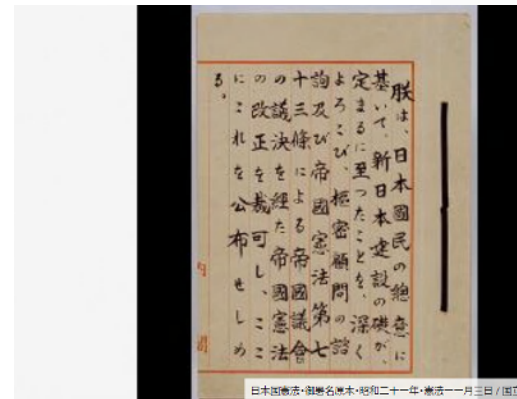 朕は、日本國民の總意に
基いて、新日本建設の礎が、
定まるに至つたことを、深く
よろこび、樞密顧問の諮
詢及び帝國憲法第七
十三條による帝國議會
の議決を經た帝國憲法
の改正を裁可し、ここ
にこれを公布せしめ
る。
日本国憲法・御署名原本・昭和二十一年・憲法一一月三日 / 国立